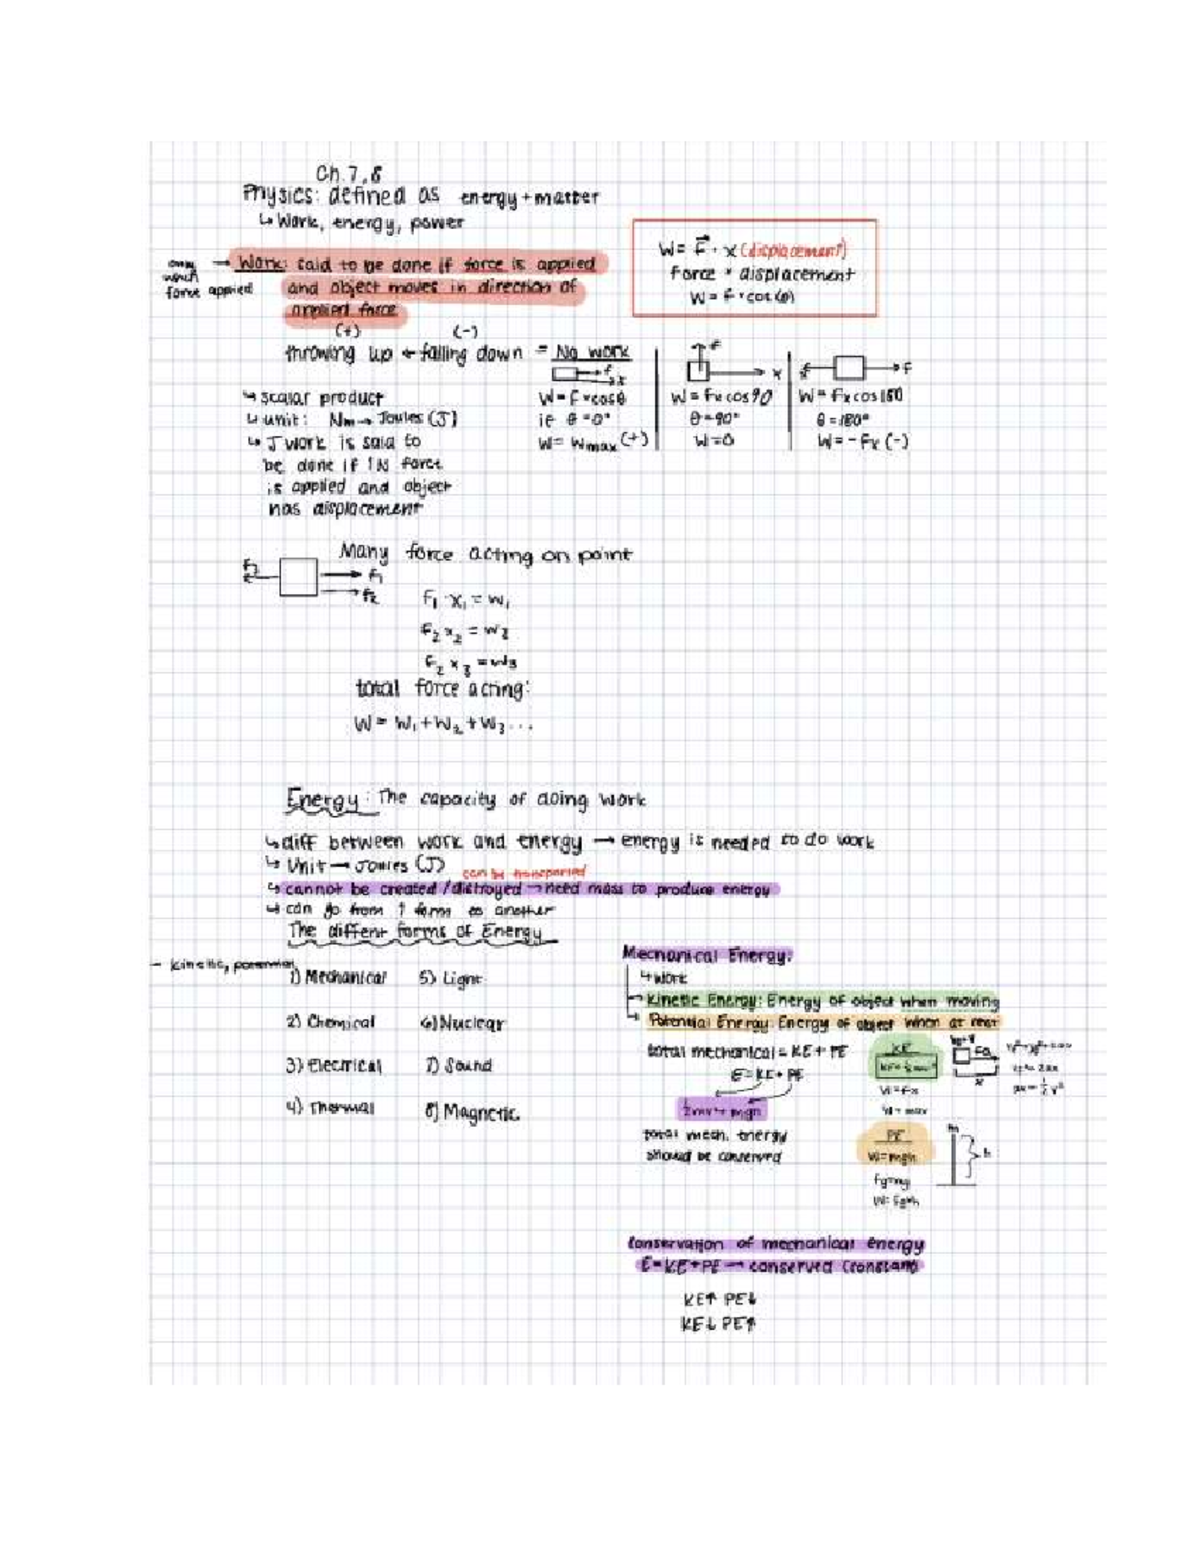 Ch.7,8
Physics: defined as energy + matter
↳ Work, energy, power
W = F⃗ · x (displacement)
Force * displacement
W = F x cos(θ)
→ Work: said to be done if force is applied
force applied
and object moves in direction of
applied force
(+) (-)
throwing up + falling down = No work
↳ scalar product
↳ unit: Nm → Joules (J)
↳ J work is said to
be done if 1N force
is applied and object
has displacement
F
x
W = F x cosθ
if θ = 0°
W = Wmax (+)
F
x
W = Fx cos90
θ = 90°
W = 0
F
F
W = Fx cos180
θ = 180°
W = - Fx (-)
Many force acting on point
F3
F1
F2
F1 · x1 = W1
F2 x2 = W2
F2 x3 = W3
total force acting:
W = W1 + W2 + W3 ...
Energy: The capacity of doing work
↳ diff between work and energy → energy is needed to do work
↳ Unit → Joules (J) can be transported
↳ cannot be created / distroyed → need mass to produce energy
↳ can go from 1 form to another
The diffent forms of Energy
- kinetic, potential
1) Mechanical 5) Light
2) Chemical 6) Nuclear
3) Electrical 7) Sound
4) Thermal 8) Magnetic
Mechanical Energy:
↳ work
→ Kinetic Energy: Energy of object when moving
↳ Potential Energy: Energy of object when at rest
total mechanical = KE + PE
E = KE + PE
½mv² + mgh
total mech. energy
should be conserved
KE
KE = ½mv²
W = Fx
W = max
Fa
x
vf² = vi² + 2ax
vf² = 2ax
ax = ½v²
PE
W = mgh
Fg = mg
W = Fgxh
m
h
Conservation of mechanical energy
E = KE + PE → conserved (constant)
KE↑ PE↓
KE↓ PE↑